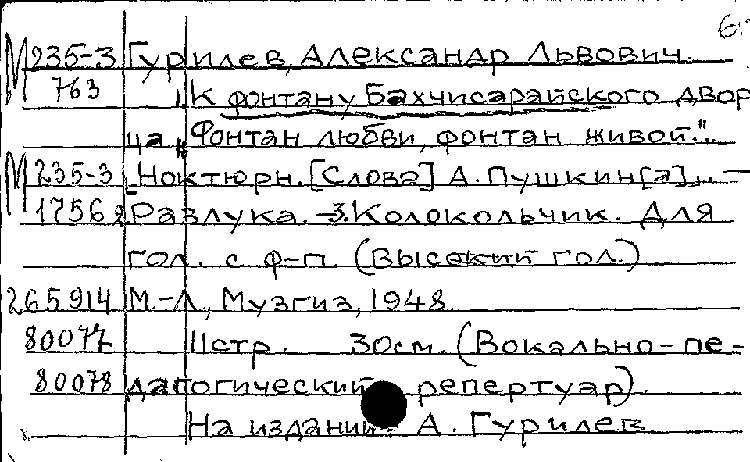 М 235-3 Гурилев, Александр Львович.
763 1. К фонтану Бахчисарайского двор
ца „Фонтан любви, фонтан живой..."
М 235-3 Ноктюрн. [Слова] А. Пушкин[а]. —
1756 2. Разлука. — 3. Колокольчик. Для
гол. с ф-п. (Высокий гол.)
265914 М.-Л., Музгиз, 1948
80077 11стр. 30см. (Вокально-пе-
80078 дагогический репертуар)
На издании: А. Гурилев